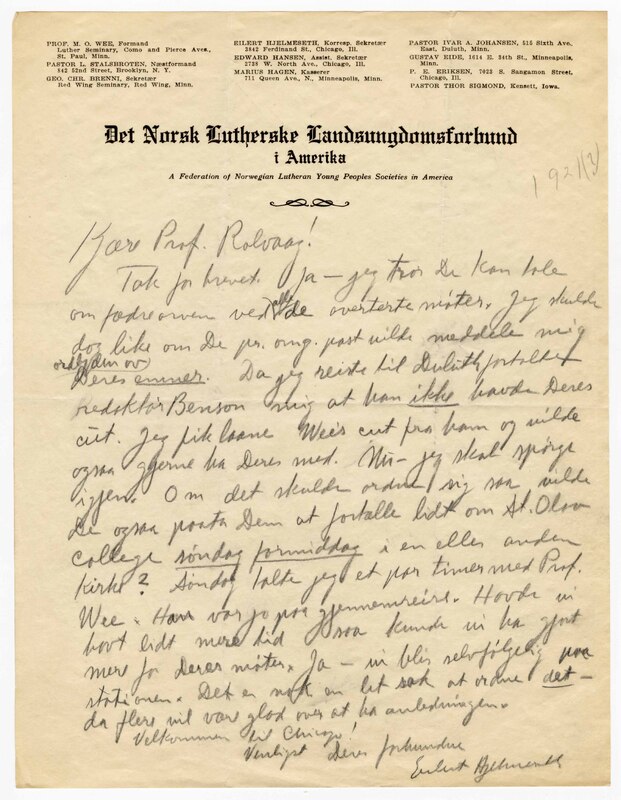 PROF. M. O. WEE, Formand
Luther Seminary, Como and Pierce Aves.,
St. Paul, Minn.
PASTOR L. STALSBROTEN, Næstformand
842 52nd Street, Brooklyn, N. Y.
GEO. CHR. BRENNI, Sekretær
Red Wing Seminary, Red Wing, Minn.
EILERT HJELMESETH, Korresp. Sekretær
3842 Ferdinand St., Chicago, Ill.
EDWARD HANSEN, Assist. Sekretær
2738 W. North Ave., Chicago, Ill.
MARIUS HAGEN, Kasserer
711 Queen Ave., N., Minneapolis, Minn.
PASTOR IVAR A. JOHANSEN, 515 Sixth Ave.
East, Duluth, Minn.
GUSTAV EIDE, 1614 E. 34th St., Minneapolis,
Minn.
P. E. ERIKSEN, 7023 S. Sangamon Street,
Chicago, Ill.
PASTOR THOR SIGMOND, Kensett, Iowa.
Det Norsk Lutherske Landsungdomsforbund
i Amerika
A Federation of Norwegian Lutheran Young Peoples Societies in America
1921(3)
Kjære Prof. Rolvaag!
Tak for brevet. Ja – jeg tror De kan tale
om fædrearven ved alle de averterte møter. Jeg skulde
dog like om De pr. omg. post vilde meddele mig
ordlyden av
Deres emner. Da jeg reiste til Duluth fortalte
redaktør Benson mig at han ikke havde Deres
cut. Jeg fik laane Wee's cut fra ham og vilde
ogsaa gjerne ha Deres med. Nu – jeg skal spørge
igjen. Om det skulde ordne sig saa vilde
De ogsaa paata Dem at fortælle lidt om St. Olav
College søndag formiddag i en eller anden
kirke? Søndag talte jeg et par timer med Prof.
Wee. Han var jo paa gjennemreise. Havde vi
havt lidt mere tid saa kunde vi ha gjort
mere for Deres møter. Ja – vi blir selvfølgelig paa
stationen. Det er nok en let sak at ordne det –
da flere vil være glad over at ha anledningen.
Velkommen til Chicago!
Venligst Deres forbundne
Eilert Hjelmeseth